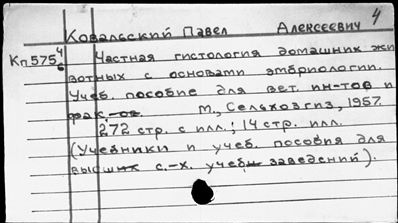 4
Ковальский Павел Алексеевич
Кп575 4/6 Частная гистология домашних жи
вотных с основами эмбриологии.
Учеб. пособие для вет. ин-тов и
фак.-ов. М., Сельхозгиз, 1957.
272 стр. с илл.; 14 стр. илл.
(Учебники и учеб. пособия для
высших с.-х. учебн заведений).